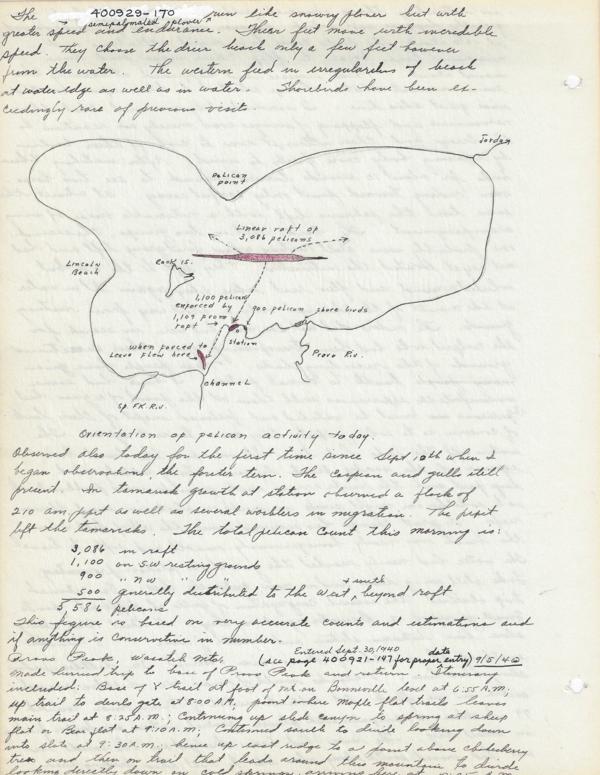 400929-170
The semipalmated plover run like snowy plover but with
greater speed and endurance. Their feet move with incredible
speed. They choose the drier beach only a few feet however
from the water. The western feed in irregularities of beach
at water edge as well as in water. Shorebirds have been ex-
ceedingly rare of previous visits.
Jordan
Pelican
point
Linear raft of
3,086 pelicans
Lincoln
Beach
Rock is.
1,100 pelican
enforced by
1,109 from
raft
900 pelican
shore birds
Station
when forced to
leave flew here
Provo Riv.
channel
Sp. FK. Riv.
Orientation of pelican activity today.
Observed also today for the first time since Sept 10th when I
began observations, the forster tern. The caspian and gulls still
present. In tamarisk growth at station observed a flock of
210 am. pipit as well as several warblers in migration. The pipit
left the tamarisks. The total pelican count this morning is:
3,086 in raft
1,100 on S.W resting grounds
900 " n w " "
500 generally distributed to the west, + south beyond raft
5,586 pelicans
This figure is based on very accurate counts and estimations and
if anything is conservative in number.
Entered Sept. 30, 1940
Provo Peak, Wasatch Mts. (see page 400921-147 for proper date entry) 9/5/40
Made hurried trip to base of Provo Peak and return. Itinerary
included: Base of Y trail at foot of mt on Bonneville level at 6:55 A.M.;
up trail to devils gate at 8:00 A.M., point where Maple flat trails leaves
main trail at 8:25 A.M.; Continuing up slide canyon to spring at sheep
flat or Bear flat at 9:10 A.M.; Continued south to divide looking down
into slate at 9:30 A.M.; hence up east ridge to a point above chokecherry
trees and then on trail that leads around this mountain to divide
looking directly down on cold springs, arriving here at